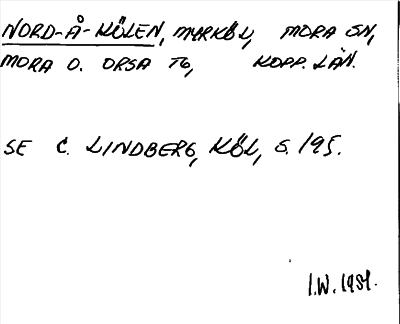 NORD-Å-KÖLEN, MYRKÖL, MORA SN,
MORA O. ORSA TG, KOPP. LÄN.
SE C. LINDBERG, KÖL, S. 195.
I.W. 1981.